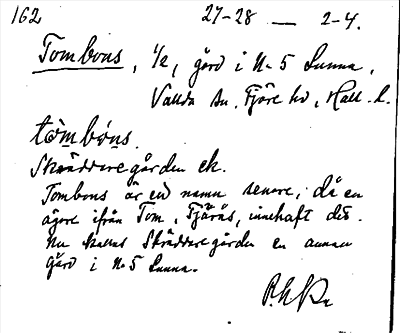 162 27-28 — 2-4.
Tombons, 1/2, gård i N-5 Lunna,
Vallda sn, Fjäre hd, Hall. l.
tòmbóns.
Skräddaregården ek.
Tombons är ett namn senare, då en
ägare ifrån Tom, Fjärås, innehaft det.
Nu kallas Skräddaregården en annan
gård i N-5 Lunna.